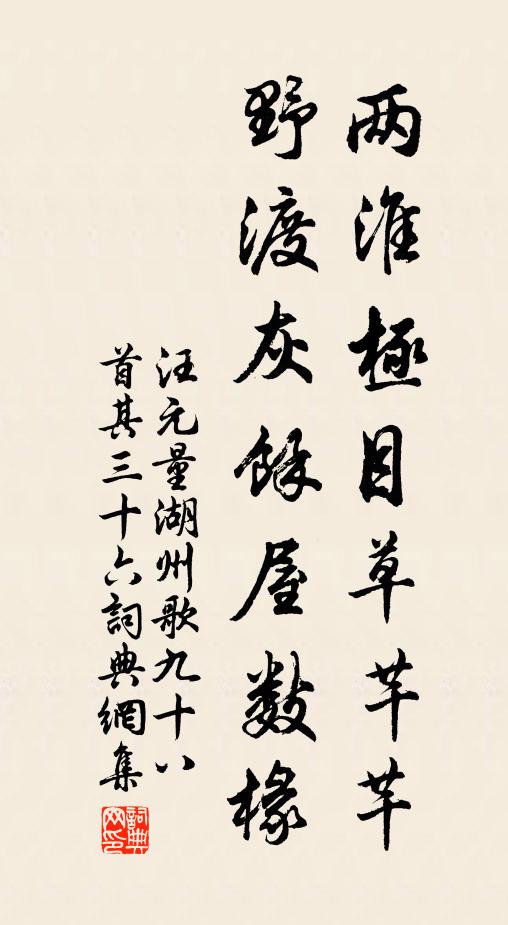 两淮極目草芊芊
野渡灰餘屋數椽
汪元量湖州歌九十八
首其三十六詞典網集
詞典
网印